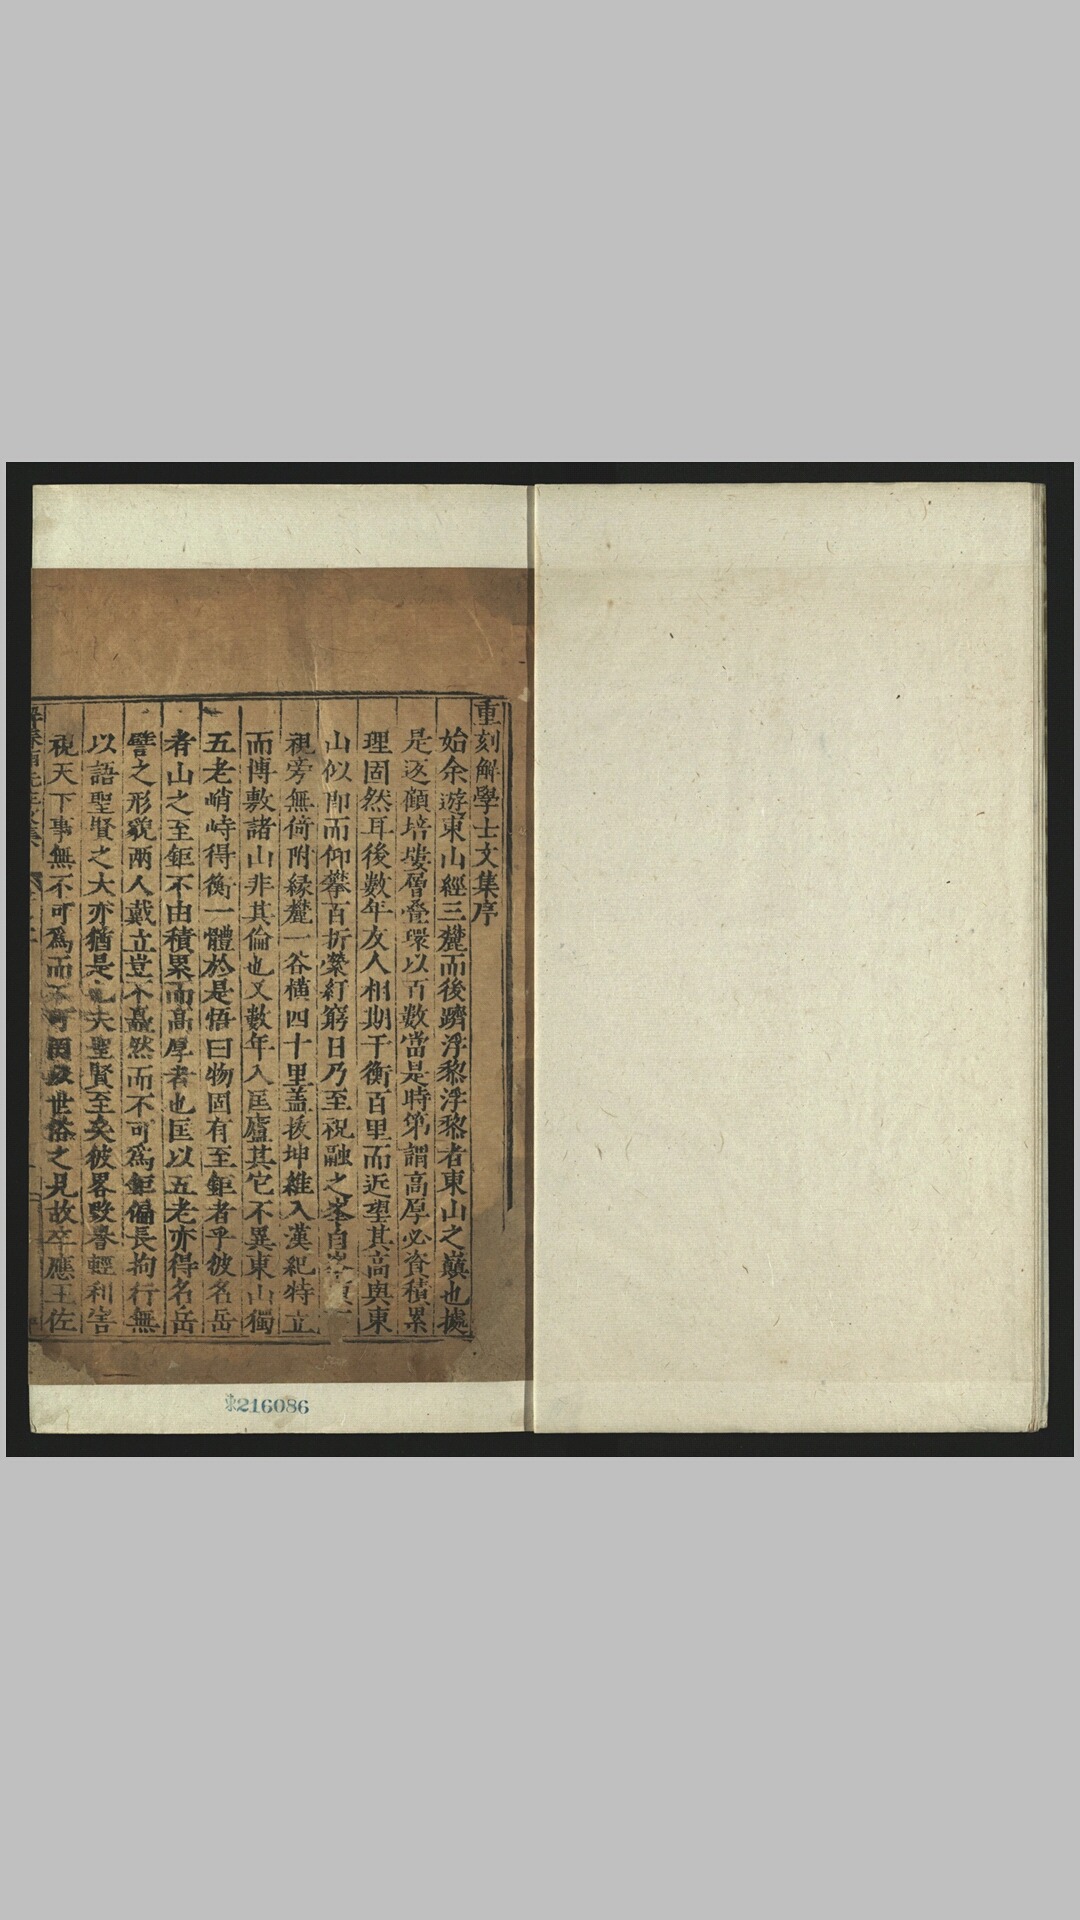 重刻解學士文集序
始余遊東山經三麓而後躋浮黎浮黎者東山之巔也據
是返顧培塿層疊環以百數當是時第謂高厚必資積累
理固然耳後數年友人相期于衡百里而近望其高與東
山似即而仰攀百折縈紆窮日乃至祝融之峯自
視旁無倚附緣麓一谷橫四十里蓋拔坤維入漢紀特立
而博敷諸山非其倫也又數年入匡廬其它不異東山獨
五老峭峙得衡一體於是悟曰物固有至鉅者乎彼名岳
者山之至鉅不由積累而高厚者也匡以五老亦得名岳
譬之形貌兩人戴立豈不矗然而不可為鉅偏長拘行無
以語聖賢之大亦猶是也夫聖賢至矣彼畧毀譽輕利害
視天下事無不可為而不可世俗之見故卒應王佐
東216086